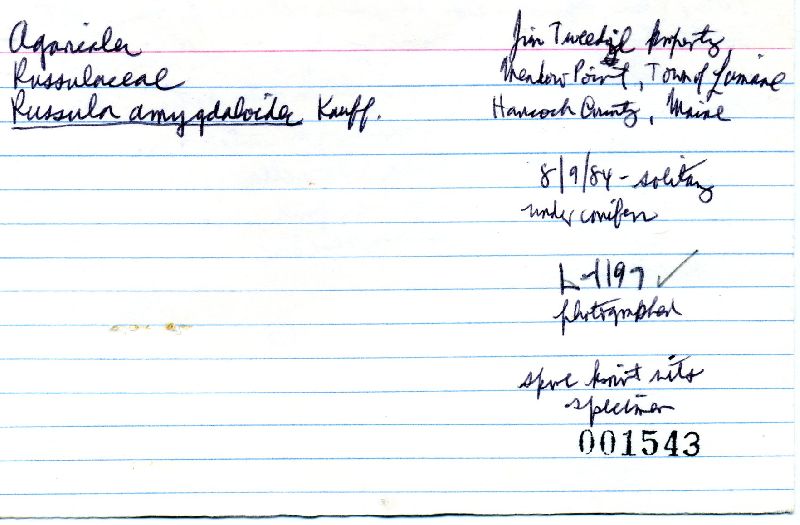 Agaricales
Russulaceae
Russula amygdaloides Kauff.
Jim Tweedie property,
Meadow Point, Town of Lamoine
Hancock County, Maine
8/9/84 - solitary
under conifers
L-1197 ✓
photographed
spore print with
specimen
001543